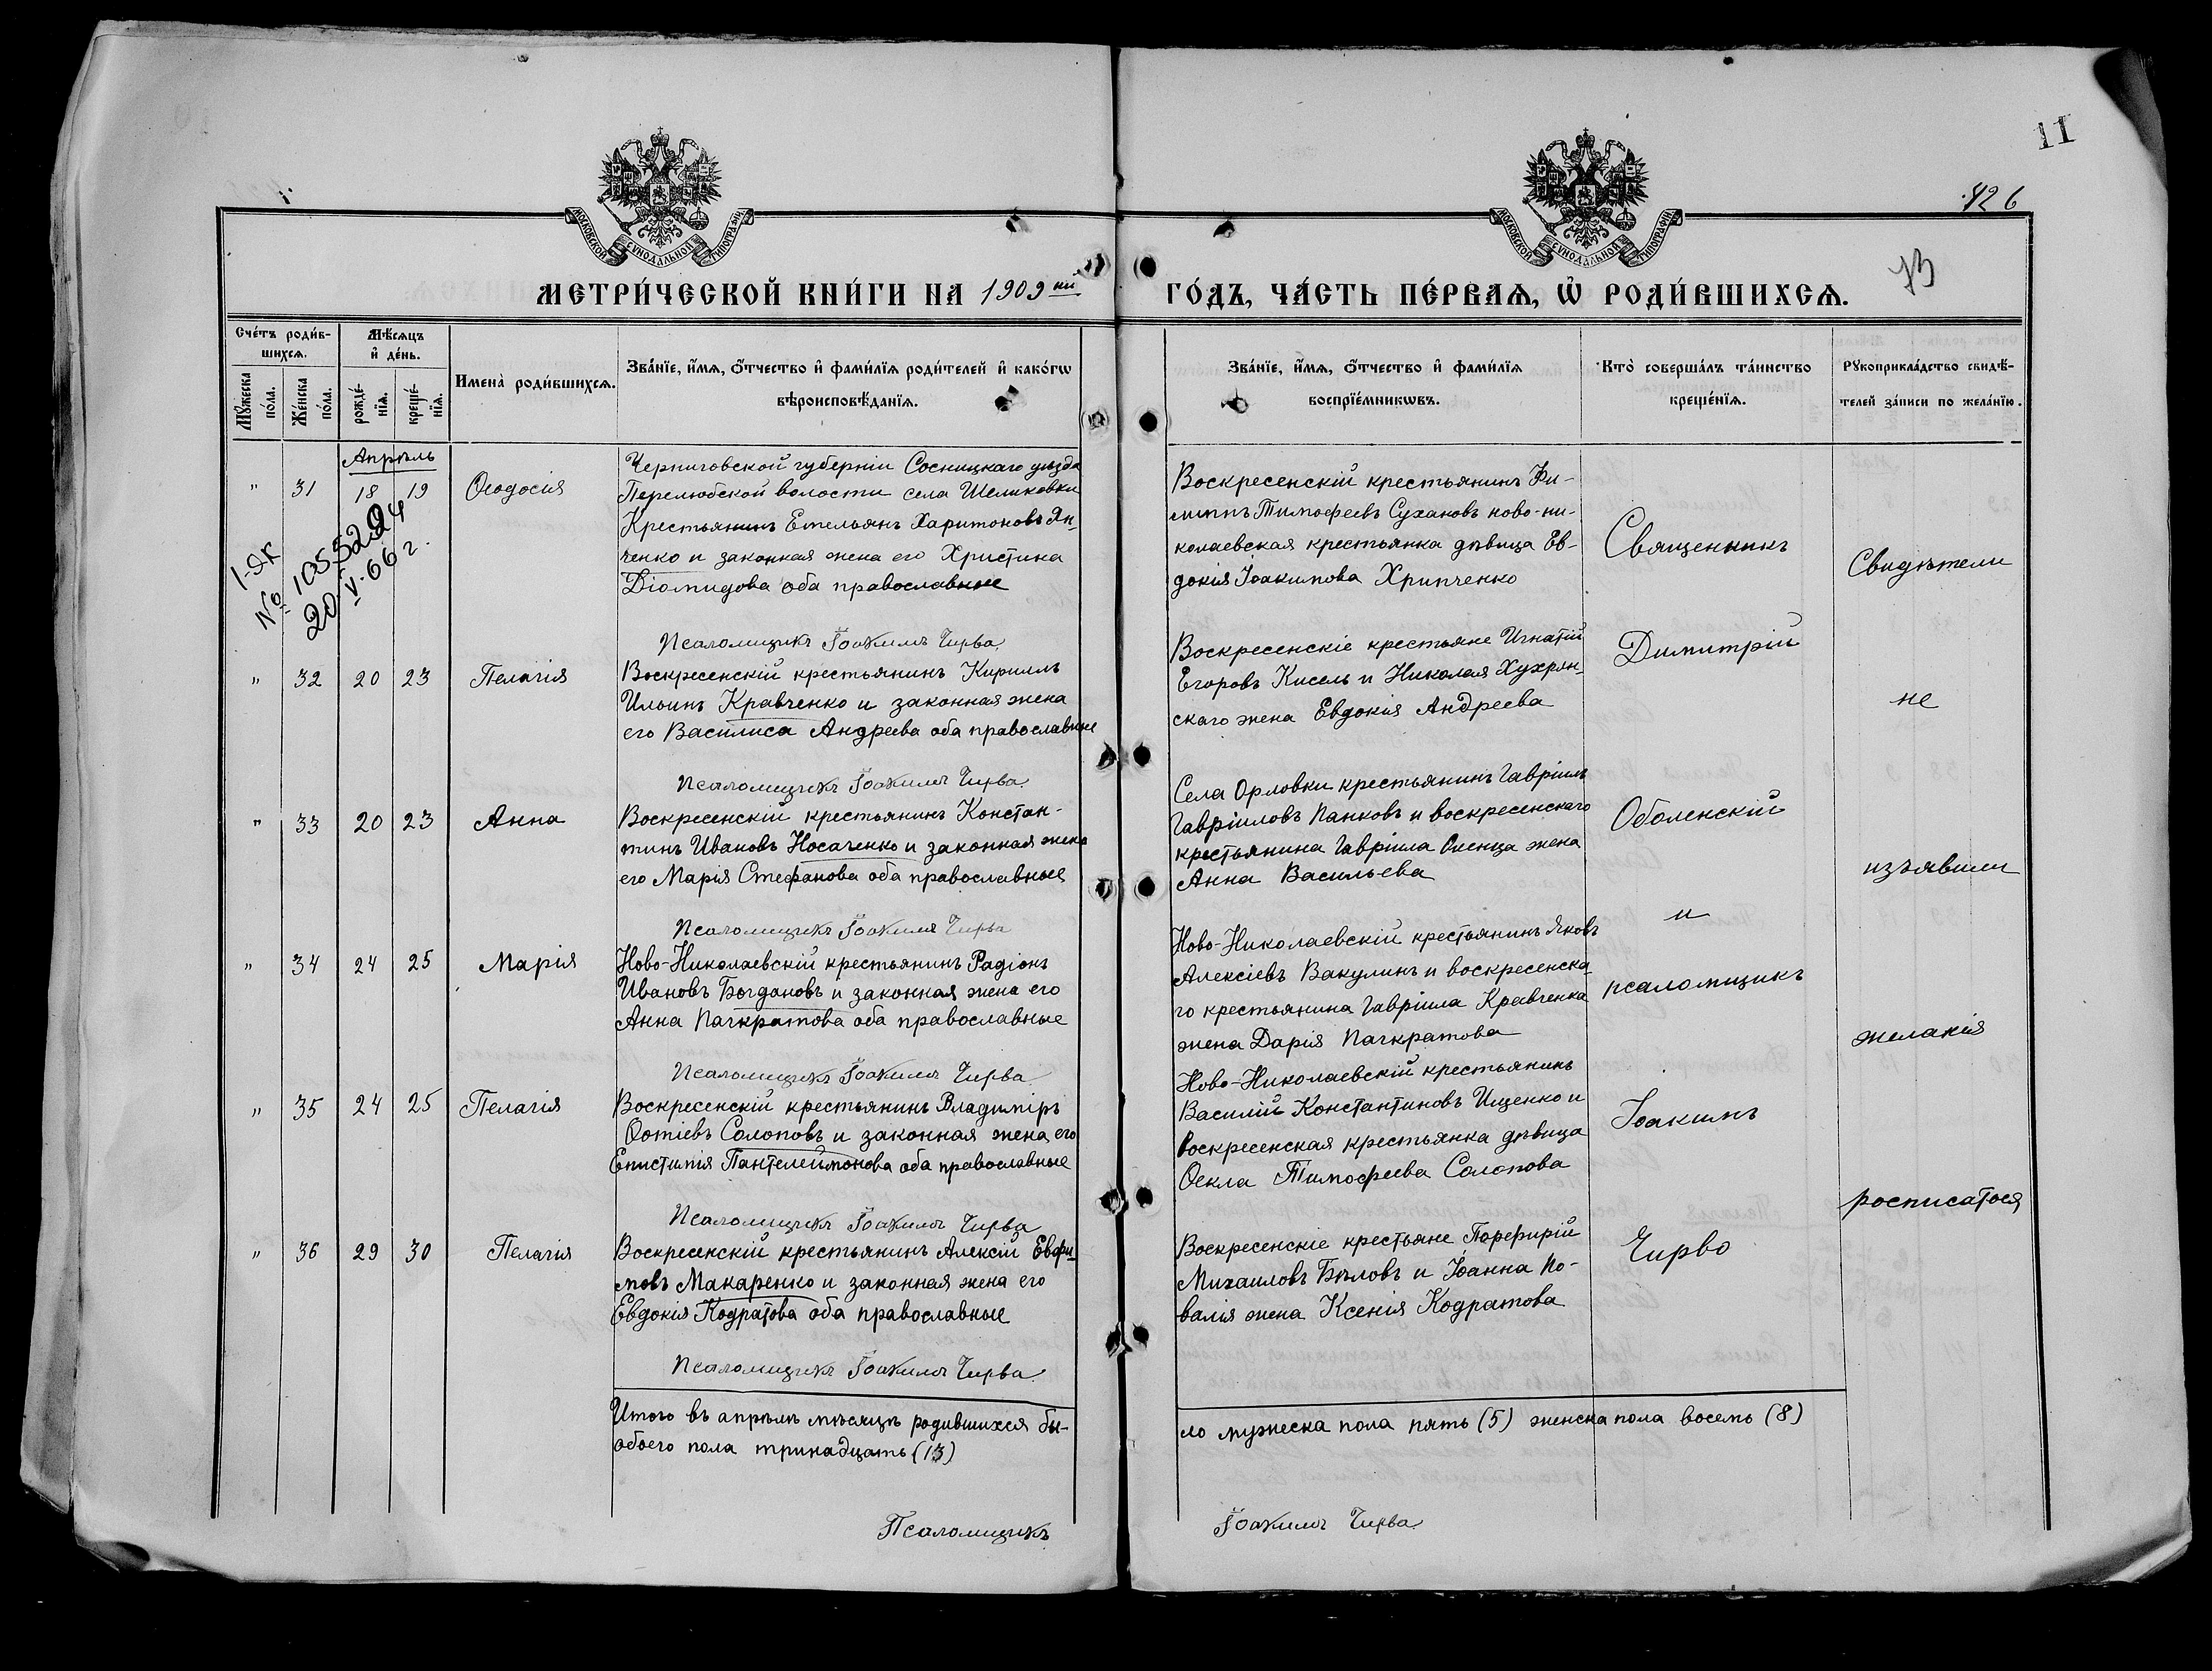 11
426
73
МОСКОВСКОЙ СѴНОДАЛЬНОЙ ТИПОГРАФІИ
МОСКОВСКОЙ СѴНОДАЛЬНОЙ ТИПОГРАФІИ
МЕТРИ́ЧЕСКОЙ КНИ́ГИ НА 1909 ый
ГО́ДЪ, ЧА́СТЬ ПЕ́РВАѦ, Ѡ РОДИ́ВШИХСѦ.
Сче́тъ роди́в-
шихсѧ.
Мꙋ́жеска по́ла.
Же́нска по́ла.
Мѣ́сѧцъ
и҆ де́нь.
рожде́-
нїѧ.
креще́-
нїѧ.
Имена̀ роди́вшихсѧ.
Зва́нїе, и҆́мѧ, ѻ҆́тчество и҆ фами́лїѧ роди́телей и҆ како́гѡ
вѣроисповѣ́данїѧ.
Зва́нїе, и҆́мѧ, ѻ҆́тчество и҆ фами́лїѧ
воспрїе́мникѡвъ.
Кто̀ соверша́лъ та́инство
креще́нїѧ.
Рꙋкоприкла́дство свидѣ́-
телей за́писи по жела́нїю.
Апрѣль
" 31 18 19 Ѳеодосія
Черниговской губерніи Сосницкаго уѣзда
Перелюбской волости села Шеликовки
Крестьянинъ Емельянъ Харитоновъ Ян-
ченко и законная жена его Христина
Діомидова оба православные
1-ЯК
20.V.66 г.
Псаломщикъ Іоакимъ Чирва
Воскресенскій крестьянинъ Фи-
липпъ Тимофеевъ Сухановъ ново-ни-
колаевская крестьянка дѣвица Ев-
докія Іоакимова Хрипченко
" 32 20 23 Пелагія
Воскресенскій крестьянинъ Кириллъ
Ильинъ Кравченко и законная жена
его Василиса Андреева оба православные
Псаломщикъ Іоакимъ Чирва
Воскресенскіе крестьяне Игнатій
Егоровъ Кисель и Николая Хухрян-
скаго жена Евдокія Андреева
" 33 20 23 Анна
Воскресенскій крестьянинъ Констан-
тинъ Ивановъ Носаченко и законная жена
его Марія Стефанова оба православные
Псаломщикъ Іоакимъ Чирва
Села Орловки крестьянинъ Гавріилъ
Гавріиловъ Панковъ и воскресенскаго
крестьянина Гавріила жена
Анна Васильева
" 34 24 25 Марія
Ново-Николаевскій крестьянинъ Радіонъ
Ивановъ Богдановъ и законная жена его
Анна Панкратова оба православные
Псаломщикъ Іоакимъ Чирва
Ново-Николаевскій крестьянинъ Яковъ
Алексіевъ Вакулинъ и воскресенска-
го крестьянина Гавріила Кравченка
жена Дарія Панкратова
" 35 24 25 Пелагія
Воскресенскій крестьянинъ Владиміръ
Ѳотіевъ Солоповъ и законная жена его
Епистимія Пантелеймонова оба православные
Псаломщикъ Іоакимъ Чирва
Ново-Николаевскій крестьянинъ
Василій Константиновъ Ищенко и
воскресенская крестьянка дѣвица
Ѳекла Тимофеева Солопова
" 36 29 30 Пелагія
Воскресенскій крестьянинъ Алексій Евфи-
мовъ Макаренко и законная жена его
Евдокія Кодратова оба православные
Псаломщикъ Іоакимъ Чирва
Воскресенскіе крестьяне Порфирій
Михаиловъ Бѣловъ и Іоанна По-
валія жена Ксенія Кодратова
Священникъ
Димитрій
Оболенскій
и
псаломщикъ
Іоакимъ
Чирво
Свидѣтели
не
изъявили
желанія
росписаться
Итого въ апрѣлѣ мѣсяцѣ родившихся бы-
ло мужеска пола пять (5) женска пола восемь (8)
обоего пола тринадцать (13)
Псаломщикъ Іоакимъ Чирва